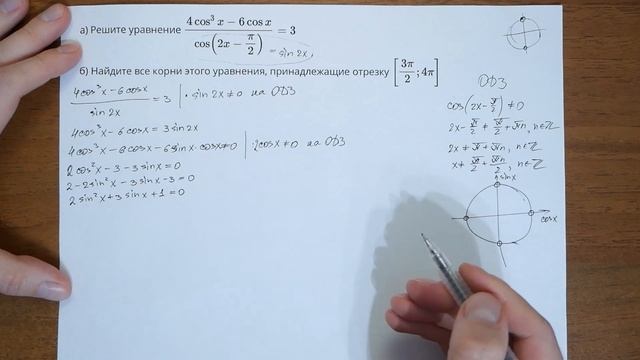 а) Решите уравнение (4 cos³ x − 6 cos x)/(cos(2x − π/2)) = 3
= sin 2x
б) Найдите все корни этого уравнения, принадлежащие отрезку [3π/2; 4π]
(4cos³x − 6cosx)/(sin 2x) = 3 | · sin 2x ≠ 0 на ОДЗ
4cos³x − 6cosx = 3 sin 2x
4cos³x − 6cosx − 6 sin x · cosx = 0 | : 2cosx ≠ 0 на ОДЗ
2cos²x − 3 − 3 sin x = 0
2 − 2 sin²x − 3 sin x − 3 = 0
2 sin²x + 3 sin x + 1 = 0
ОДЗ
cos(2x − π/2) ≠ 0
2x − π/2 ≠ π/2 + πn, n∈ℤ
2x ≠ π + πn, n∈ℤ
x ≠ π/2 + πn/2, n∈ℤ
sin x
cos x